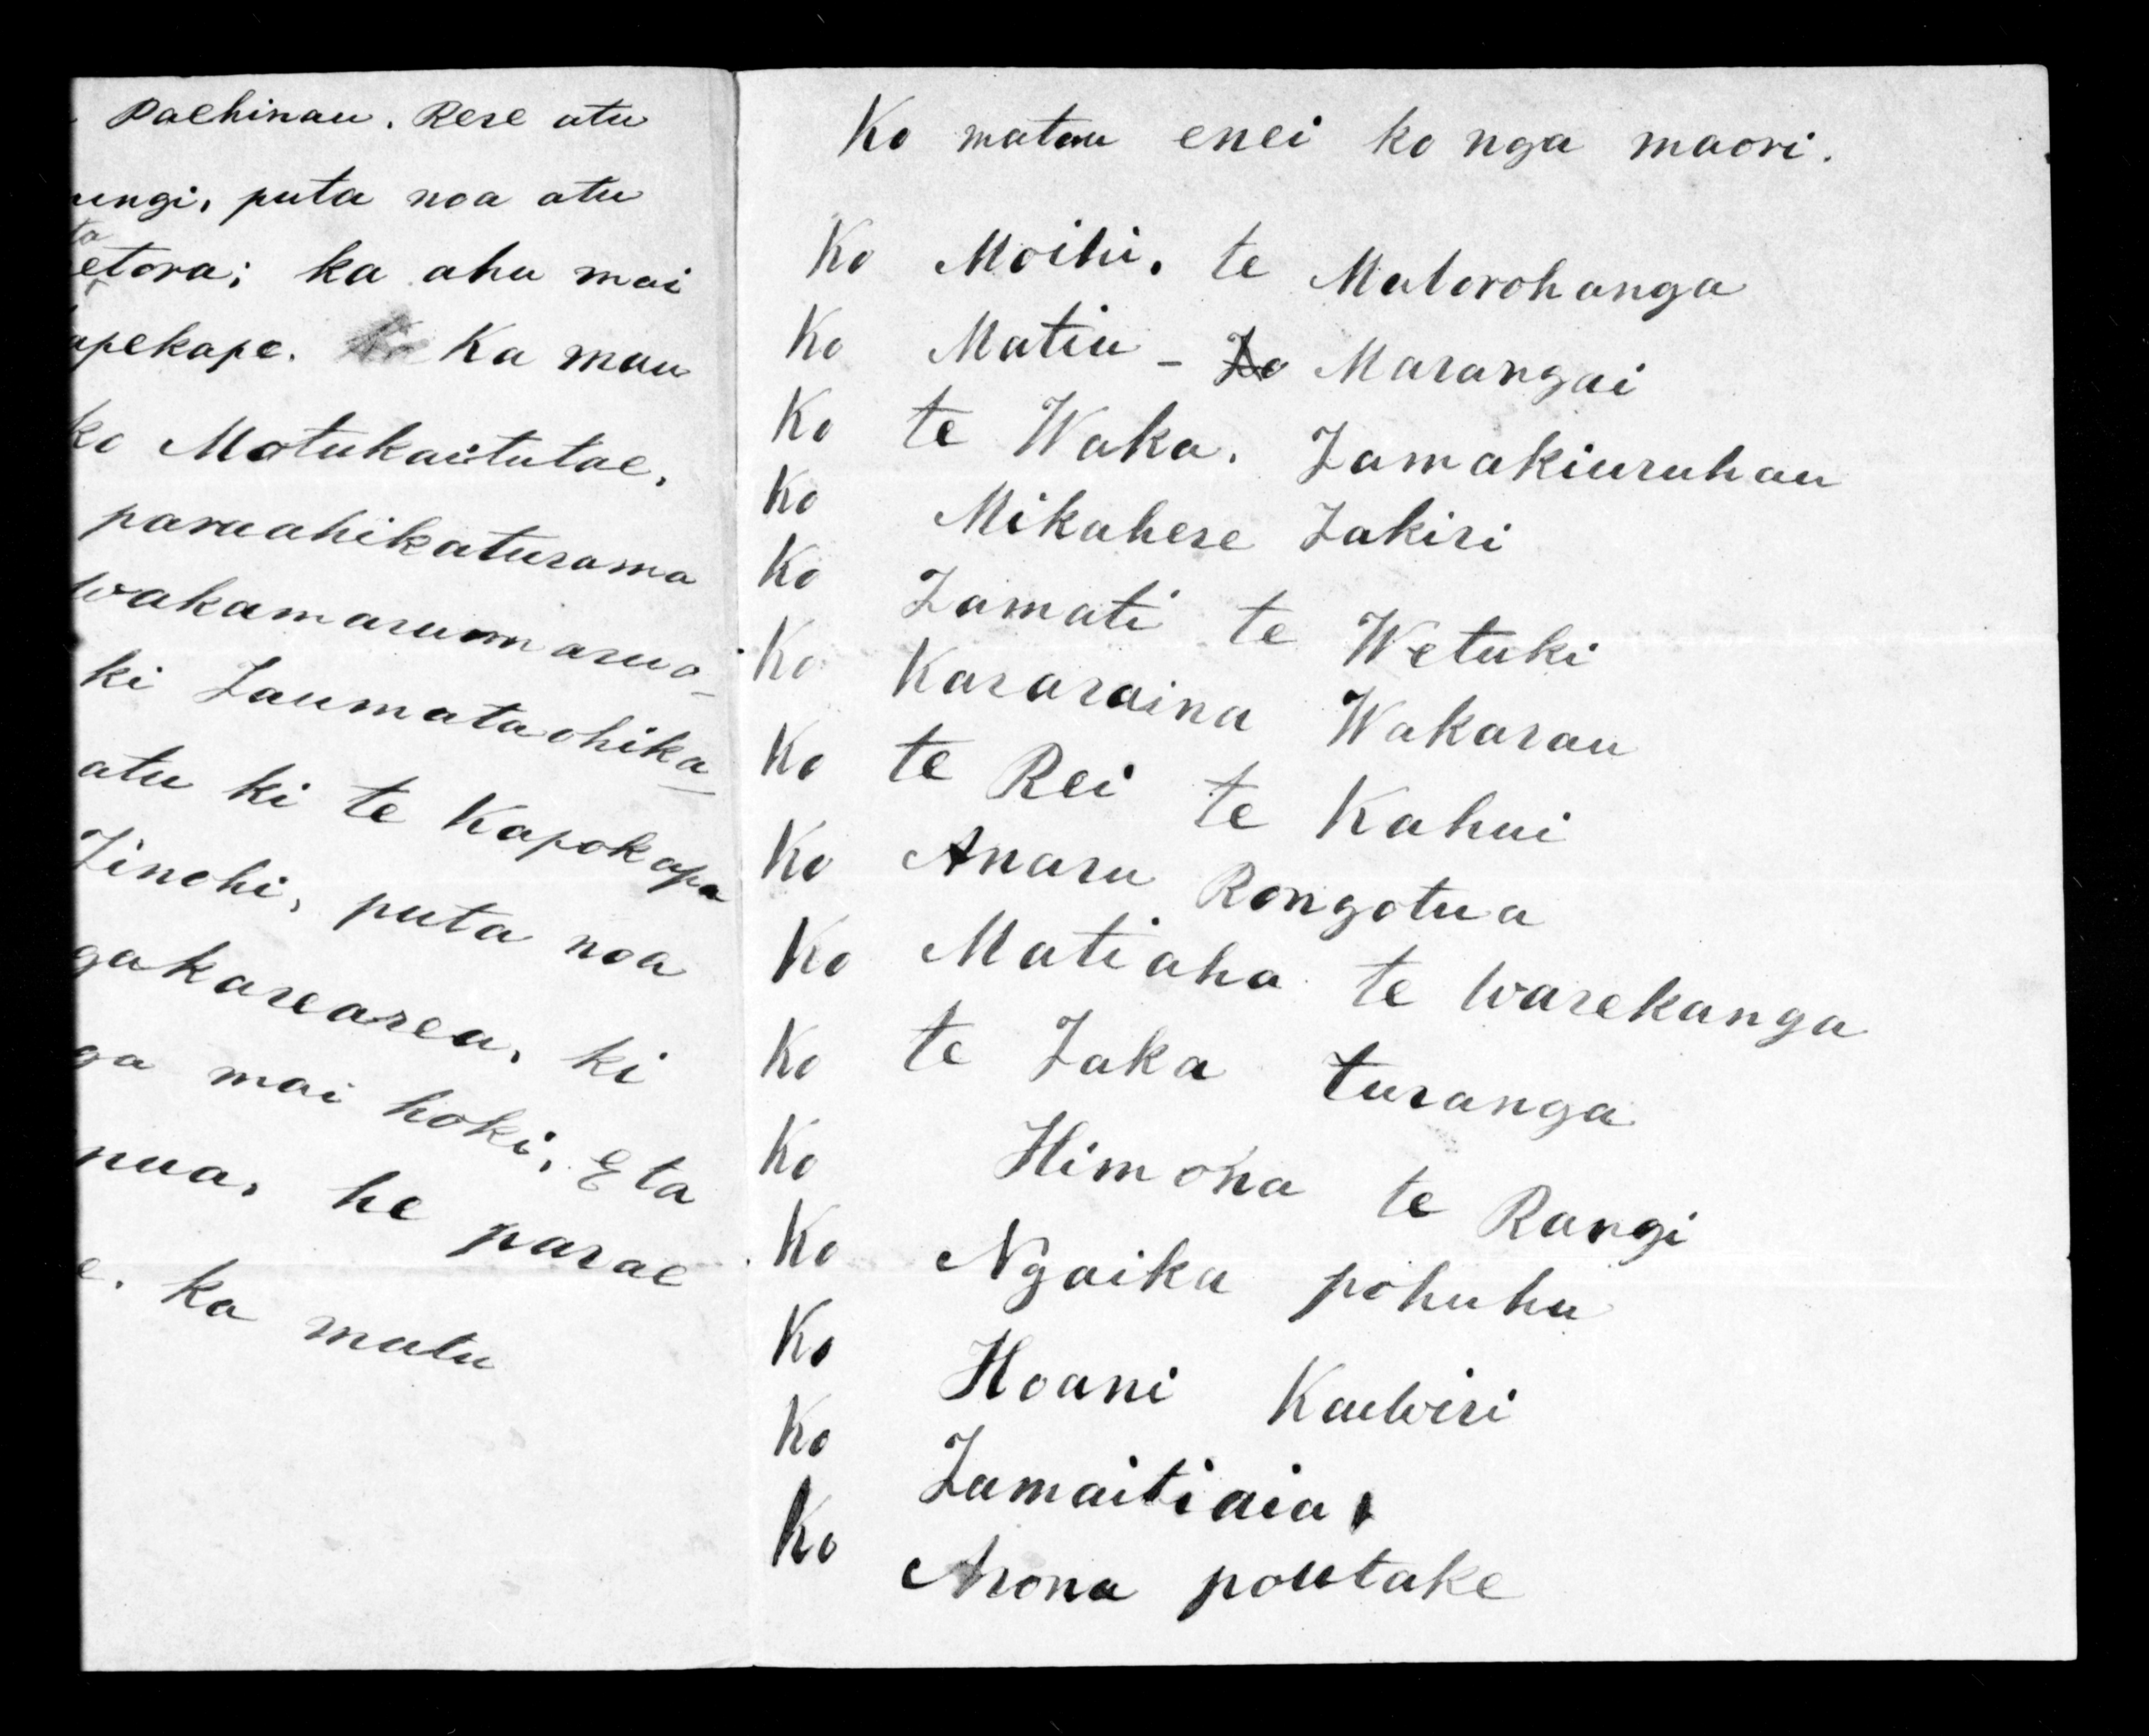 Paehinau. Rere atu
ungi, puta noa atu
ta
etora; ka ahu mai
apekape. Ka mau
ko Motukaitutae,
paruahikaturama
wakamarumaruo-
ki Taumataohika-
atu ki te Kapokapo
Tinohi, puta noa
gakarearea, ki
ga mai hoki, E ta
pua, he parae
e. ka mutu
Ko matou enei ko nga maori.
Ko Moihi. te Matorohanga
Ko Matiu - To Marangai
Ko te Waka. Tamakiuruhau
Ko Mikahere Takiri
Ko Tamati te Wetuki
Ko Kararaina Wakarau
Ko te Rei te Kahui
Ko Anaru Rongotua
Ko Matiaha te Warekanga
Ko te Taka turanga
Ko Himona te Rangi
Ko Ngaika pohuhu
Ko Hoani Kawiri
Ko Tamaitiaia
Ko Arona poutake